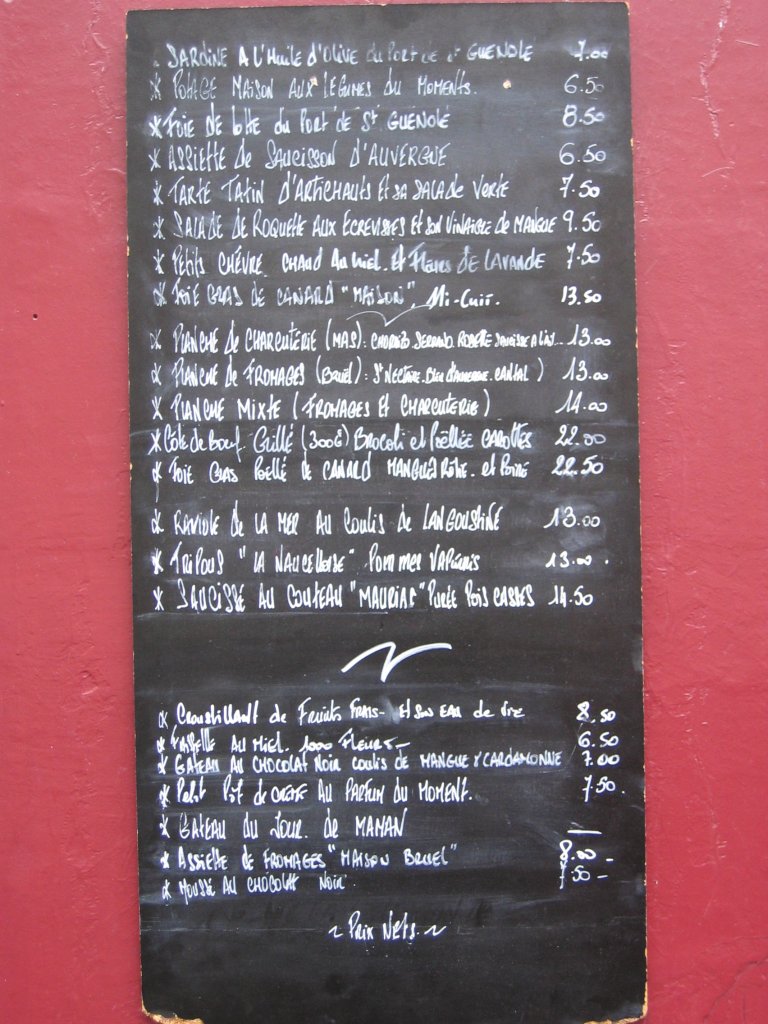 SARDINE A L'Huile d'Olive du Port de St GUENOLÉ 7.00
* POTAGE MAISON AUX LÉGUMES DU MOMENTS. 6.50
* FOIE DE lotte du PORT DE St GUENOLÉ 8.50
* ASSIETTE de SAUCISSON D'AUVERGNE 6.50
* TARTE TATIN D'ARTICHAUTS ET SA SALADE VERTE 7.50
* SALADE DE ROQUETTE AUX ECREVISSES ET SON VINAIGRE de MANGUE 9.50
* PETITS CHÈVRE CHAUD AU MIEL. ET FLEURS DE LAVANDE 7.50
* FOIE GRAS DE CANARD "MAISON" Mi-Cuit. 13.50
* PLANCHE de CHARCUTERIE (MAS): CHORIZO SERRANO. ROSETTE SAUCISSE A L' 13.00
* PLANCHE DE FROMAGES (BRUEL): St NECTAIRE. BLEU D'AUVERGNE. CANTAL) 13.00
* PLANCHE MIXTE (FROMAGES ET CHARCUTERIE) 14.00
* Côte de Boeuf Grillé (300G) BROCOLI et Poêllée CAROTTES 22.00
* FOIE GRAS POELLÉ DE CANARD MANGUE RÔTIE. et POIRE 22.50
* RAVIOLE DE LA MER AU COULIS de LANGOUSTINE 13.00
* TRIPOUS "LA NAUCELLOISE" Pommes VAPEURS 13.00.
* SAUCISSE AU COUTEAU "MAURIAC" PURÉE POIS CASSÉS 14.50
* CROUSTILLANT de FRUITS FRAIS- ET SON EAU de Vie 8.50
* FAISSELLE AU MIEL. 1000 FLEURS- 6.50
* GATEAU AU CHOCOLAT NOIR COULIS DE MANGUE Y CARDAMONNE 7.00
* PETIT POT de CRÈME AU PARFUM DU MOMENT. 7.50.
* GATEAU DU JOUR. DE MAMAN —
* ASSIETTE DE FROMAGES "MAISON BRUEL" 8.00-
* MOUSSE AU CHOCOLAT NOIR. 7.50-
~ PRIX NETS. ~